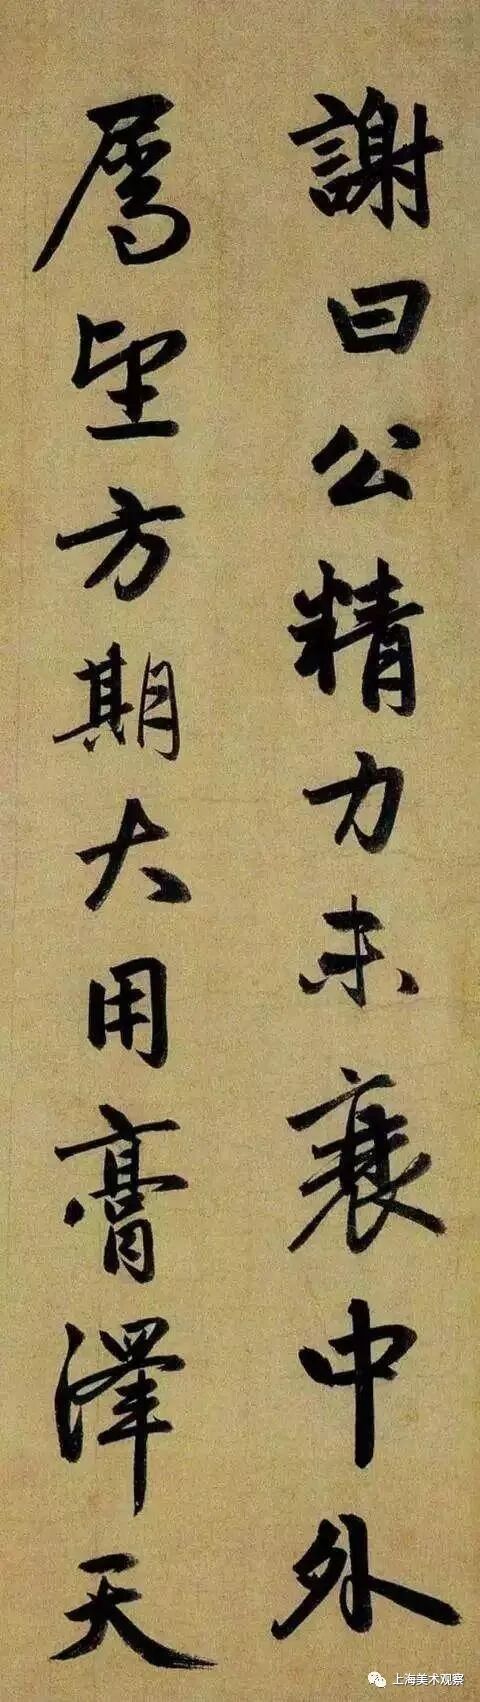 謝曰公精力未衰中外
属望方期大用膏澤天
上海美术观察